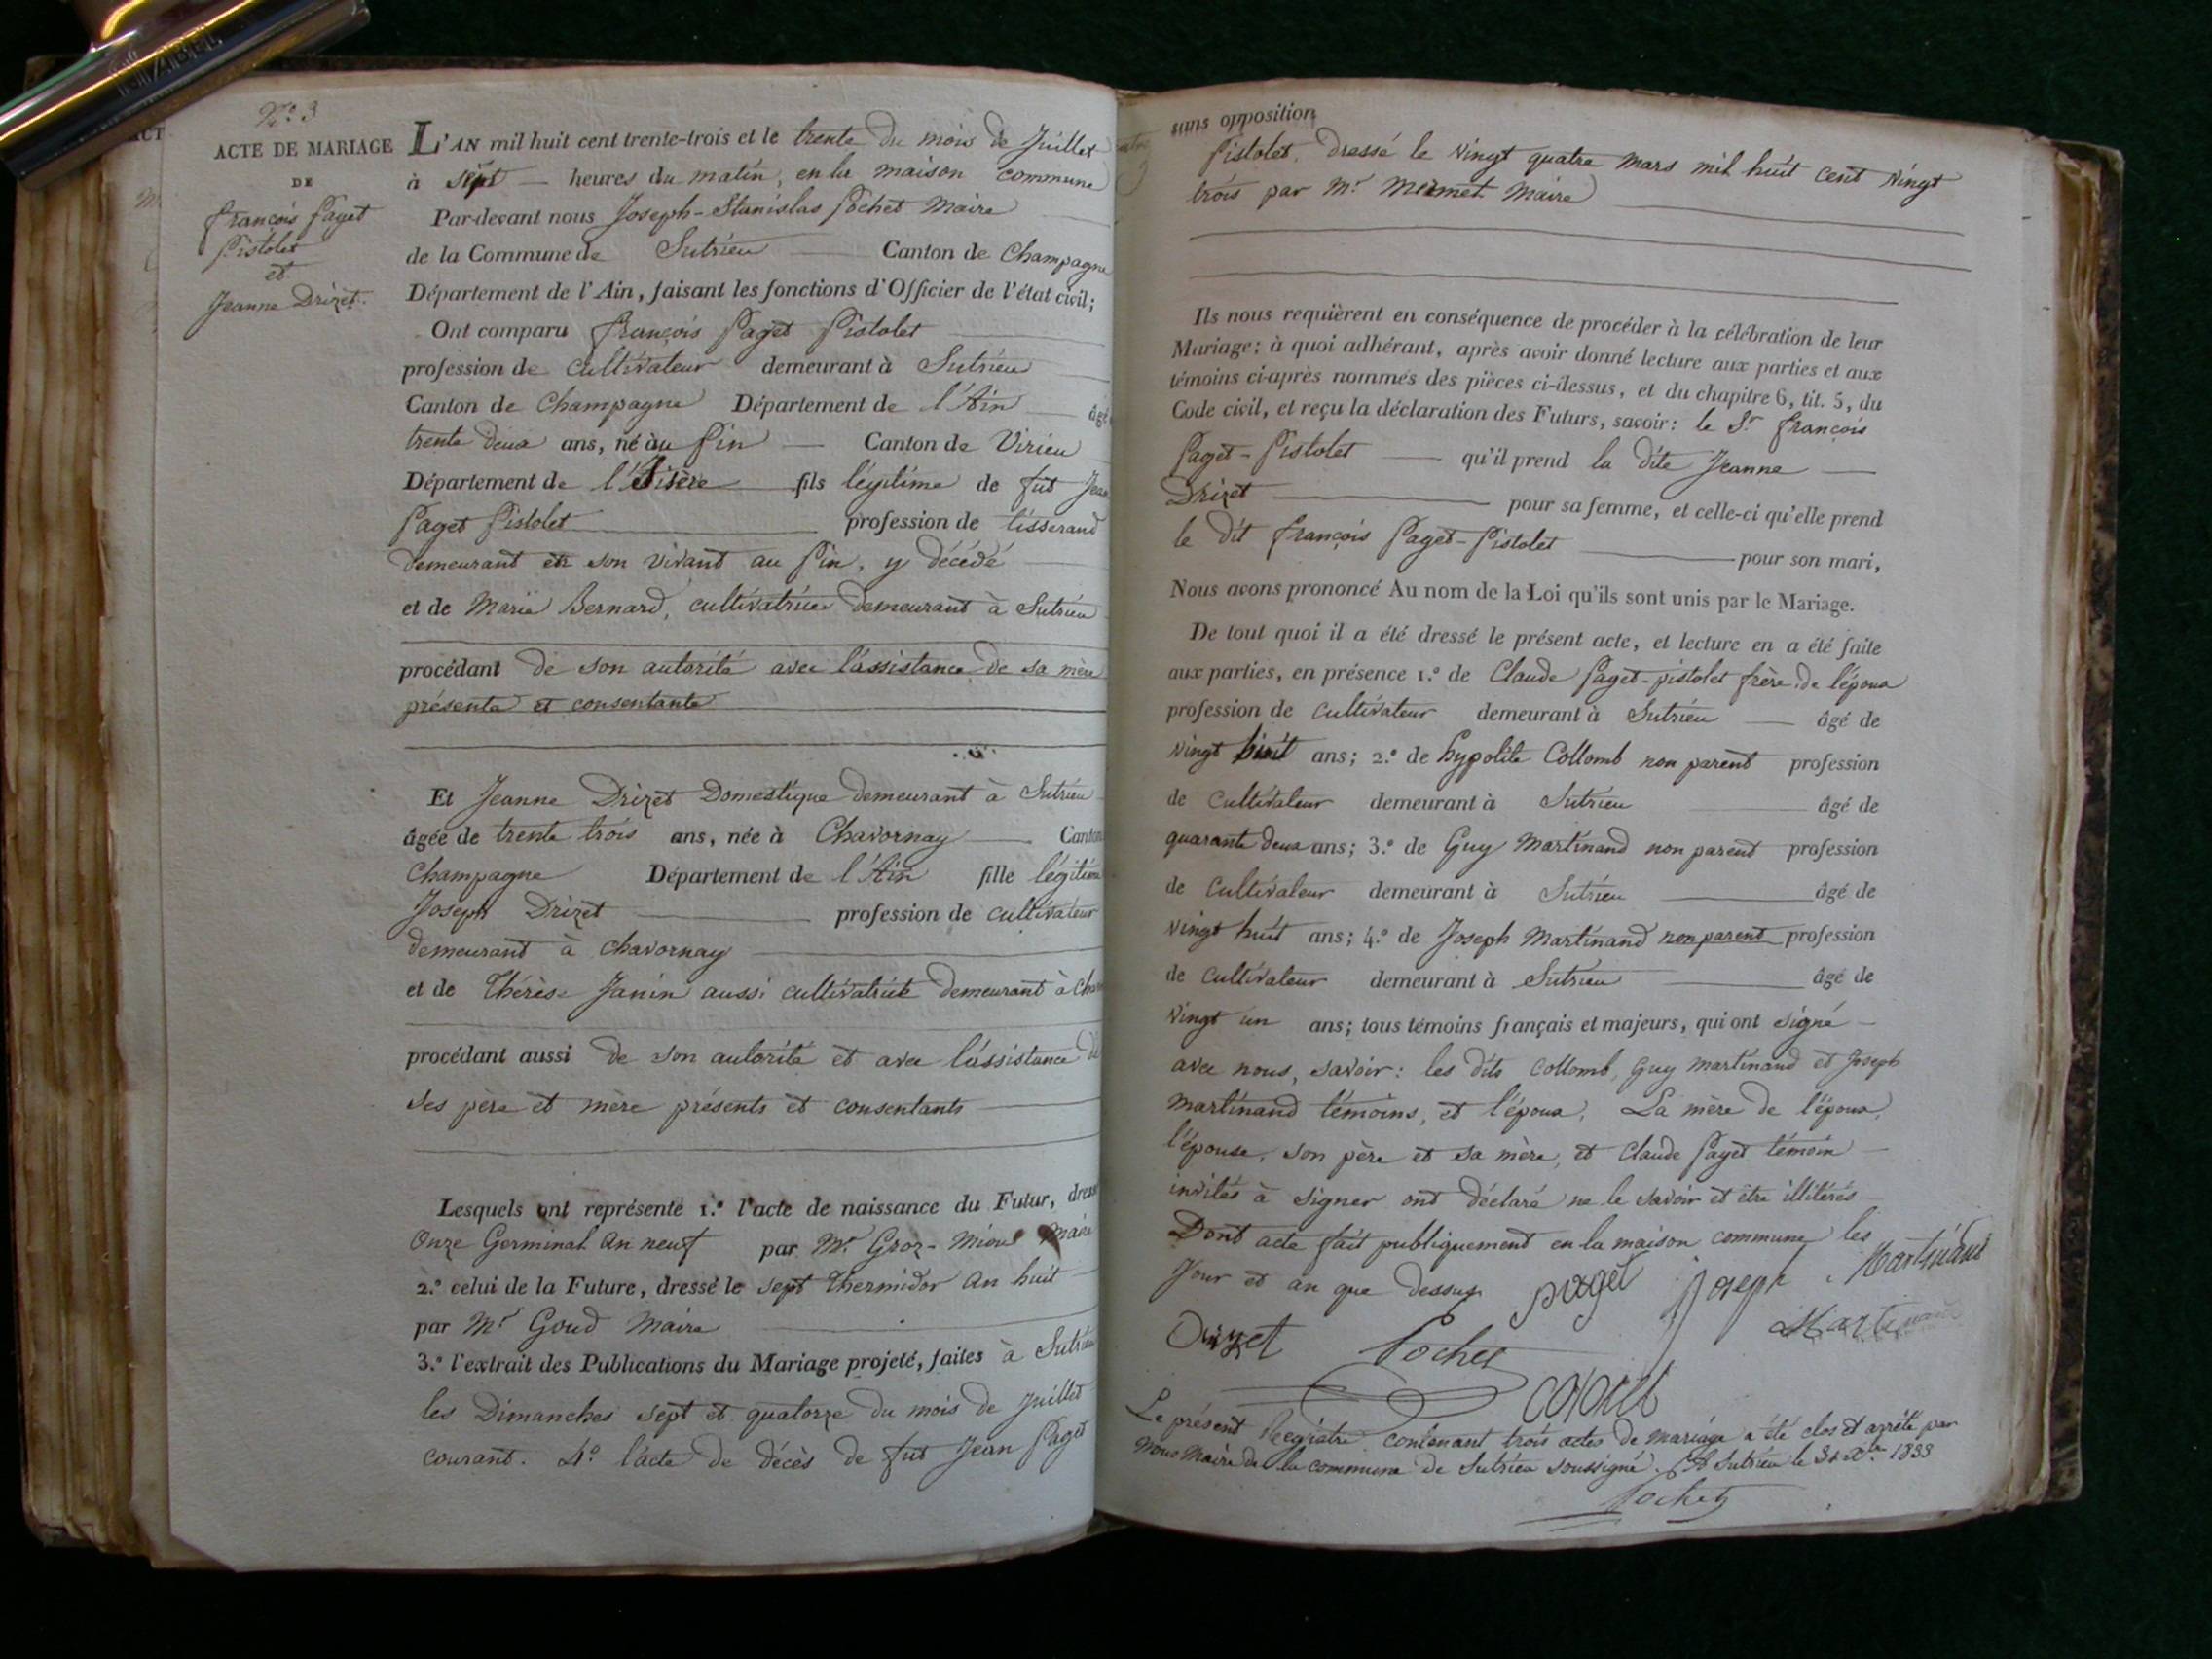 N.º 3
ACTE DE MARIAGE
DE
françois Paget
Pistolet
et
Jeanne Drizet.
L'AN mil huit cent trente-trois et le trente du mois de Juillet
à sept heures du matin, en la maison commune
Par-devant nous Joseph-Stanislas Pochet Maire
de la Commune de Sutrieu Canton de Champagne
Département de l'Ain, faisant les fonctions d'Officier de l'état civil;
Ont comparu françois Paget Pistolet
profession de cultivateur demeurant à Sutrieu
Canton de Champagne Département de l'Ain âgé
trente deux ans, né au Pin Canton de Virieu
Département de l'Isère fils légitime de fut Jean
Paget Pistolet profession de tisserand
demeurant en son vivant au Pin, y décédé
et de Marie Bernard, cultivatrice demeurant à Sutrieu
procédant de son autorité avec l'assistance de sa mère
présente et consentante
Et Jeanne Drizet Domestique demeurant à Sutrieu
âgée de trente trois ans, née à Chavornay Canton
Champagne Département de l'Ain fille légitime
Joseph Drizet profession de cultivateur
demeurant à Chavornay
et de Thérèse Janin aussi cultivatrice demeurant à Chav
procédant aussi de son autorité et avec l'assistance de
ses père et mère présents et consentants
Lesquels ont représenté 1.º l'acte de naissance du Futur, dressé
Onze Germinal An neuf par M.r Groz- Maire
2.º celui de la Future, dressé le sept Thermidor An huit
par M.r Goud Maire
3.º l'extrait des Publications du Mariage projeté, faites à Sutrieu
les Dimanches sept et quatorze du mois de Juillet
courant. 4.º l'acte de décès de fut Jean Paget
sans opposition
Pistolet, dressé le vingt quatre mars mil huit cent vingt
trois par M.r Mermet Maire
Ils nous requièrent en conséquence de procéder à la célébration de leur
Mariage; à quoi adhérant, après avoir donné lecture aux parties et aux
témoins ci-après nommés des pièces ci-dessus, et du chapitre 6, tit. 5, du
Code civil, et reçu la déclaration des Futurs, savoir: le S.r françois
Paget-Pistolet qu'il prend la dite Jeanne
Drizet pour sa femme, et celle-ci qu'elle prend
le dit françois Paget-Pistolet pour son mari,
Nous avons prononcé Au nom de la Loi qu'ils sont unis par le Mariage.
De tout quoi il a été dressé le présent acte, et lecture en a été faite
aux parties, en présence 1.º de Claude Paget-pistolet frère de l'époux
profession de cultivateur demeurant à Sutrieu âgé de
vingt huit ans; 2.º de hypolite Collomb non parent profession
de cultivateur demeurant à Sutrieu âgé de
quarante deux ans; 3.º de Guy Martinand non parent profession
de cultivateur demeurant à Sutrieu âgé de
vingt huit ans; 4.º de Joseph Martinand non parent profession
de cultivateur demeurant à Sutrieu âgé de
vingt un ans; tous témoins français et majeurs, qui ont signé
avec nous, savoir: les dits Collomb, Guy martinand et Joseph
martinand témoins, et l'époux, La mère de l'époux,
l'épouse, son père et sa mère, et Claude Paget témoin
invités à signer ont déclaré ne le savoir et être illitérés
Dont acte fait publiquement en la maison commune les
Jour et an que dessus paget Joseph Martinand
Drizet Pochet Martinand
Le présent Registre contenant trois actes de mariage a été clos et arrêté par
nous Maire de la commune de Sutrieu soussigné. A Sutrieu le 31 X.bre 1833
Pochet